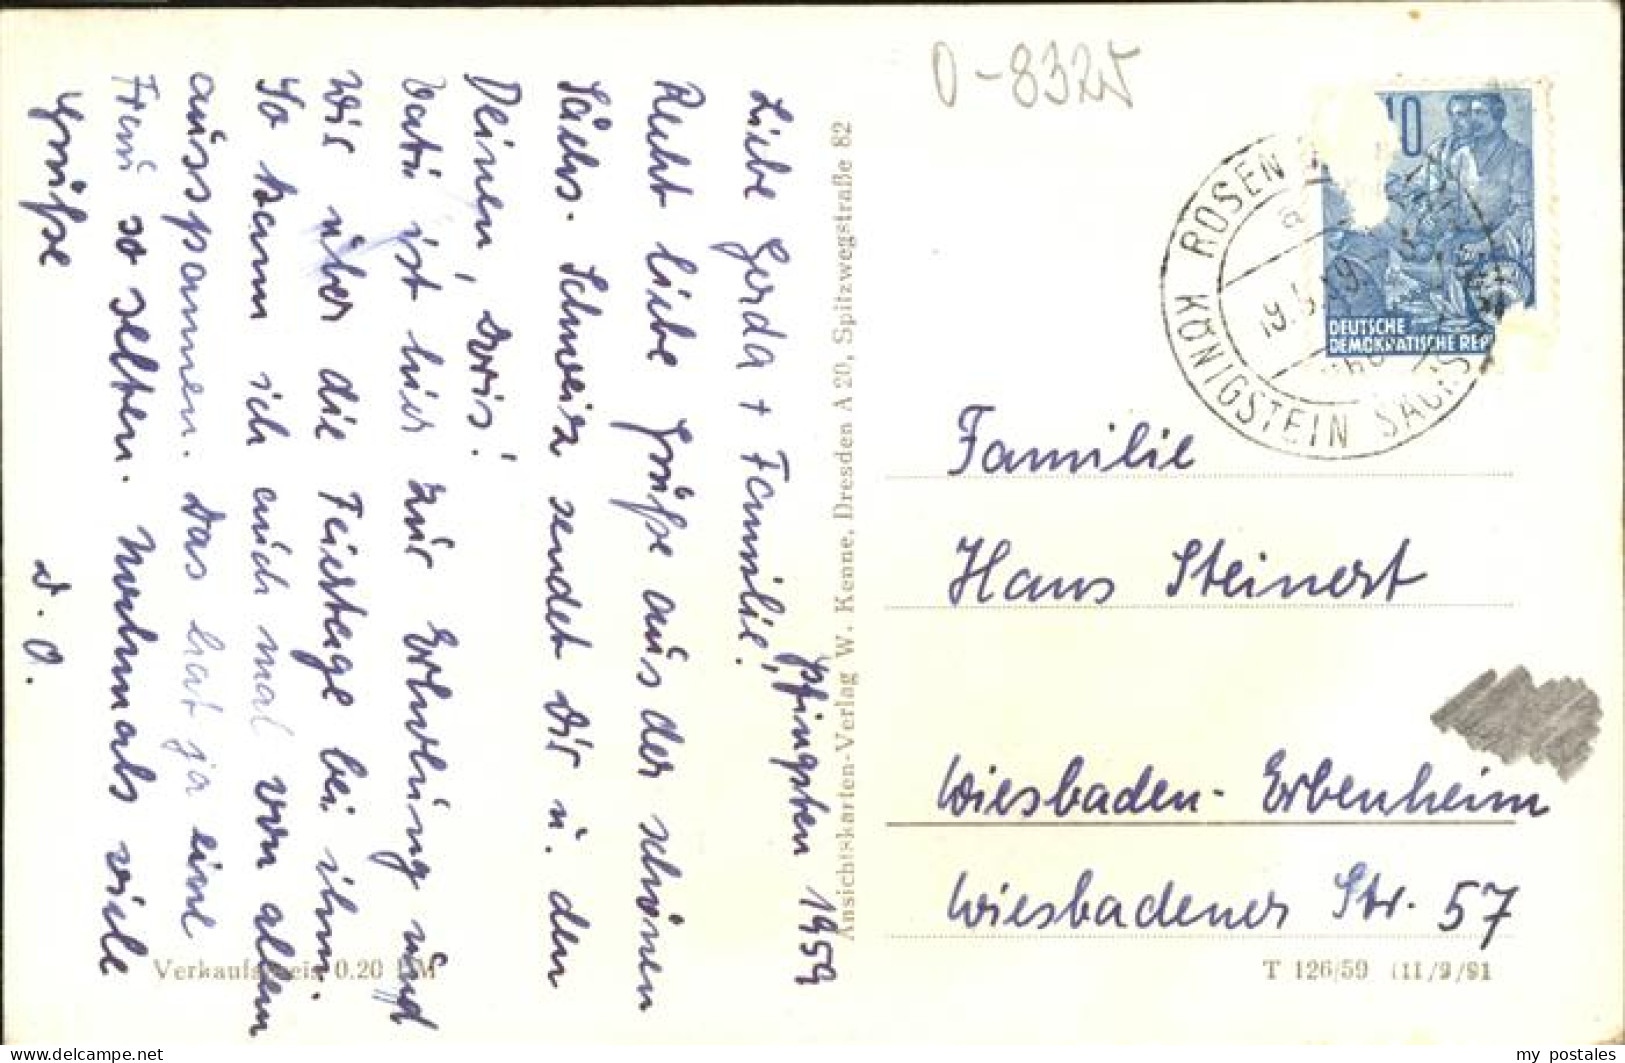 O-8325
Pfingsten 1959
Liebe Gerda + Familie!
Recht liebe Grüße aus der schönen
Sächs. Schweiz sendet Dir u. den
Deinen, Doris!
Vati ist hier zur Erholung und
wir über die Feiertage bei ihm.
So kann ich auch mal von allem
ausspannen. Das hat ja eine
Frau so selten. Nochmals viele
Grüße
D. O.
Verkaufspreis 0.20 DM
Ansichtskarten-Verlag W. Kenne, Dresden A 20, Spitzwegstraße 82
10
DEUTSCHE
DEMOKRATISCHE REP
ROSEN
KÖNIGSTEIN SÄCHS
a
19.5.59
Familie
Hans Steinert
Wiesbaden-Erbenheim
Wiesbadener Str. 57
T 126/59 III/9/91
my_postales
www.delcampe.net